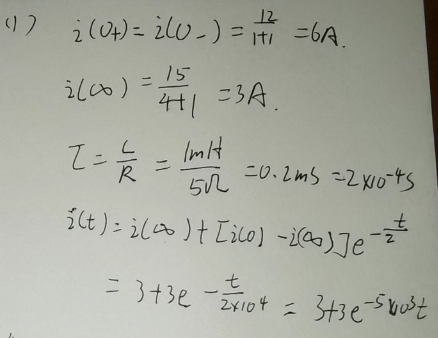 (1) i(0+) = i(0-) = 12/(1+1) = 6A.
i(∞) = 15/(4+1) = 3A.
τ = L/R = 1mH/5Ω = 0.2ms = 2×10^-4 s
i(t) = i(∞) + [i(0) - i(∞)] e^(-t/τ)
= 3+3e^(-t/(2×10^4)) = 3+3e^(-5×10^3 t)